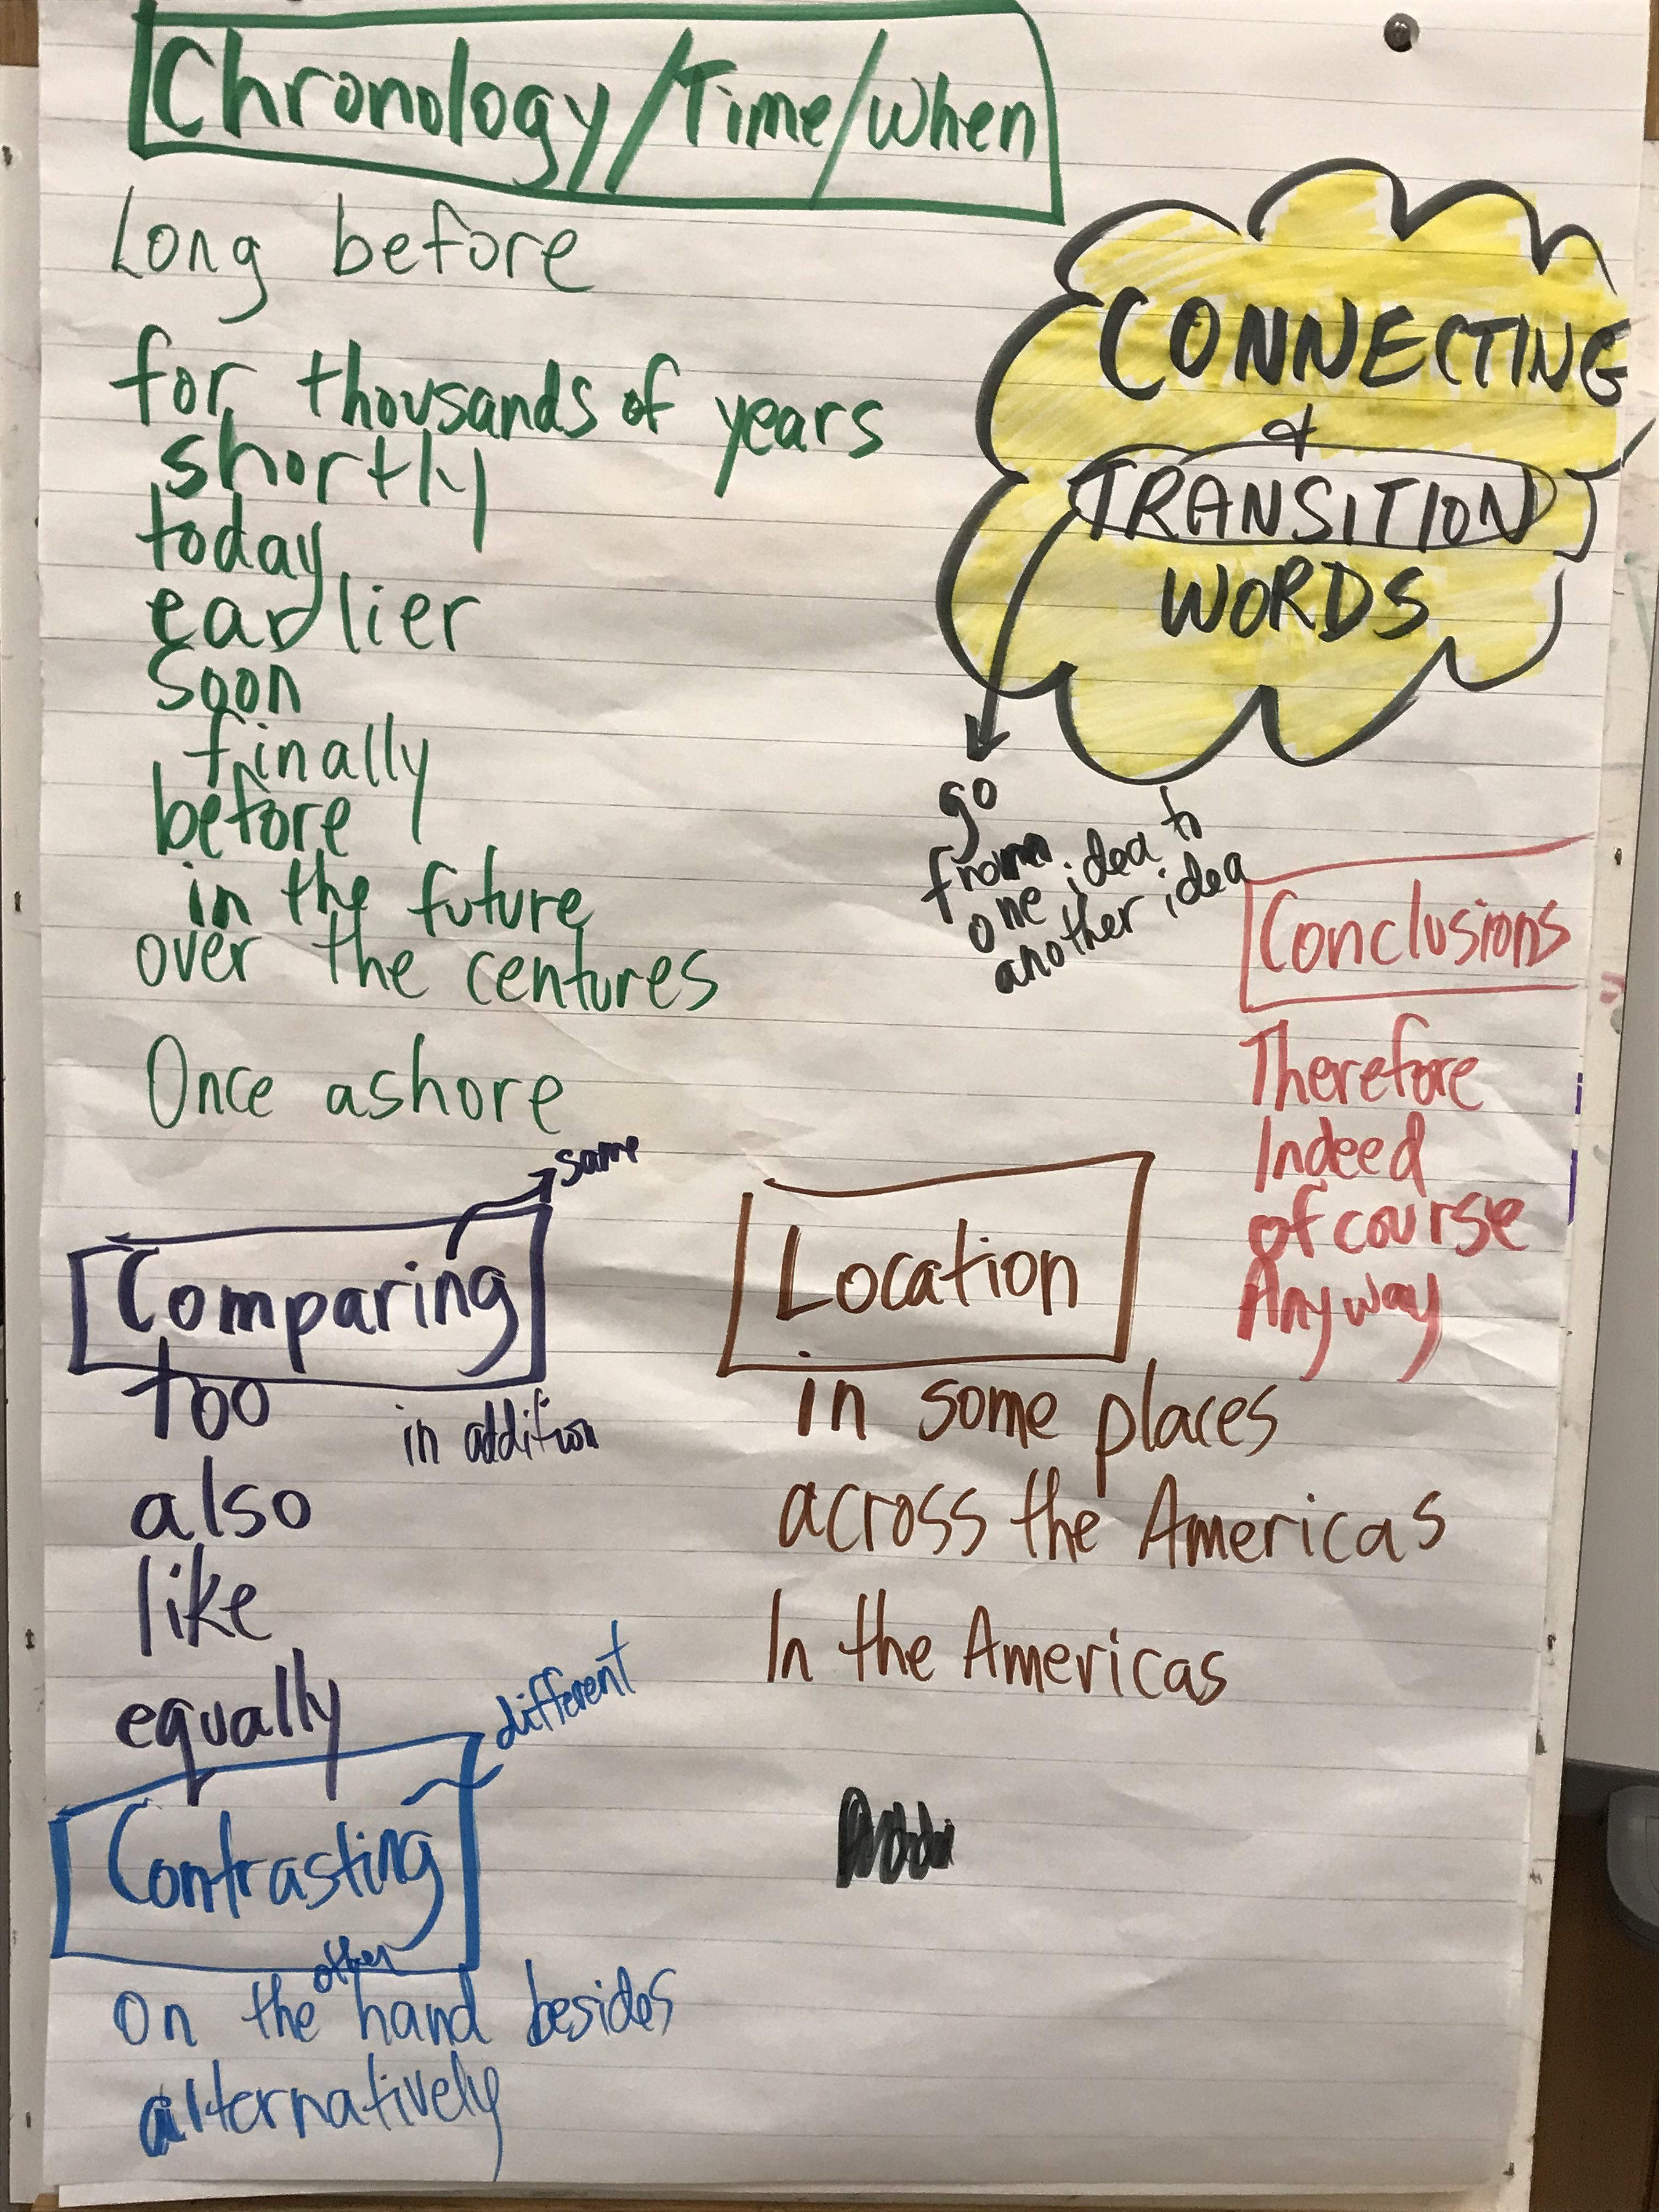 Chronology/Time/When
Long before
for thousands of years
shortly
today
earlier
soon
finally
before
in the future
over the centures
Once ashore
CONNECTING
&
TRANSITION
WORDS
go
from
one idea to
another idea
Conclusions
Therefore
Indeed
of course
Anyway
same
Comparing
too
in addition
also
like
equally
Location
in some places
across the Americas
In the Americas
different
Contrasting
On the other hand besides
alternatively